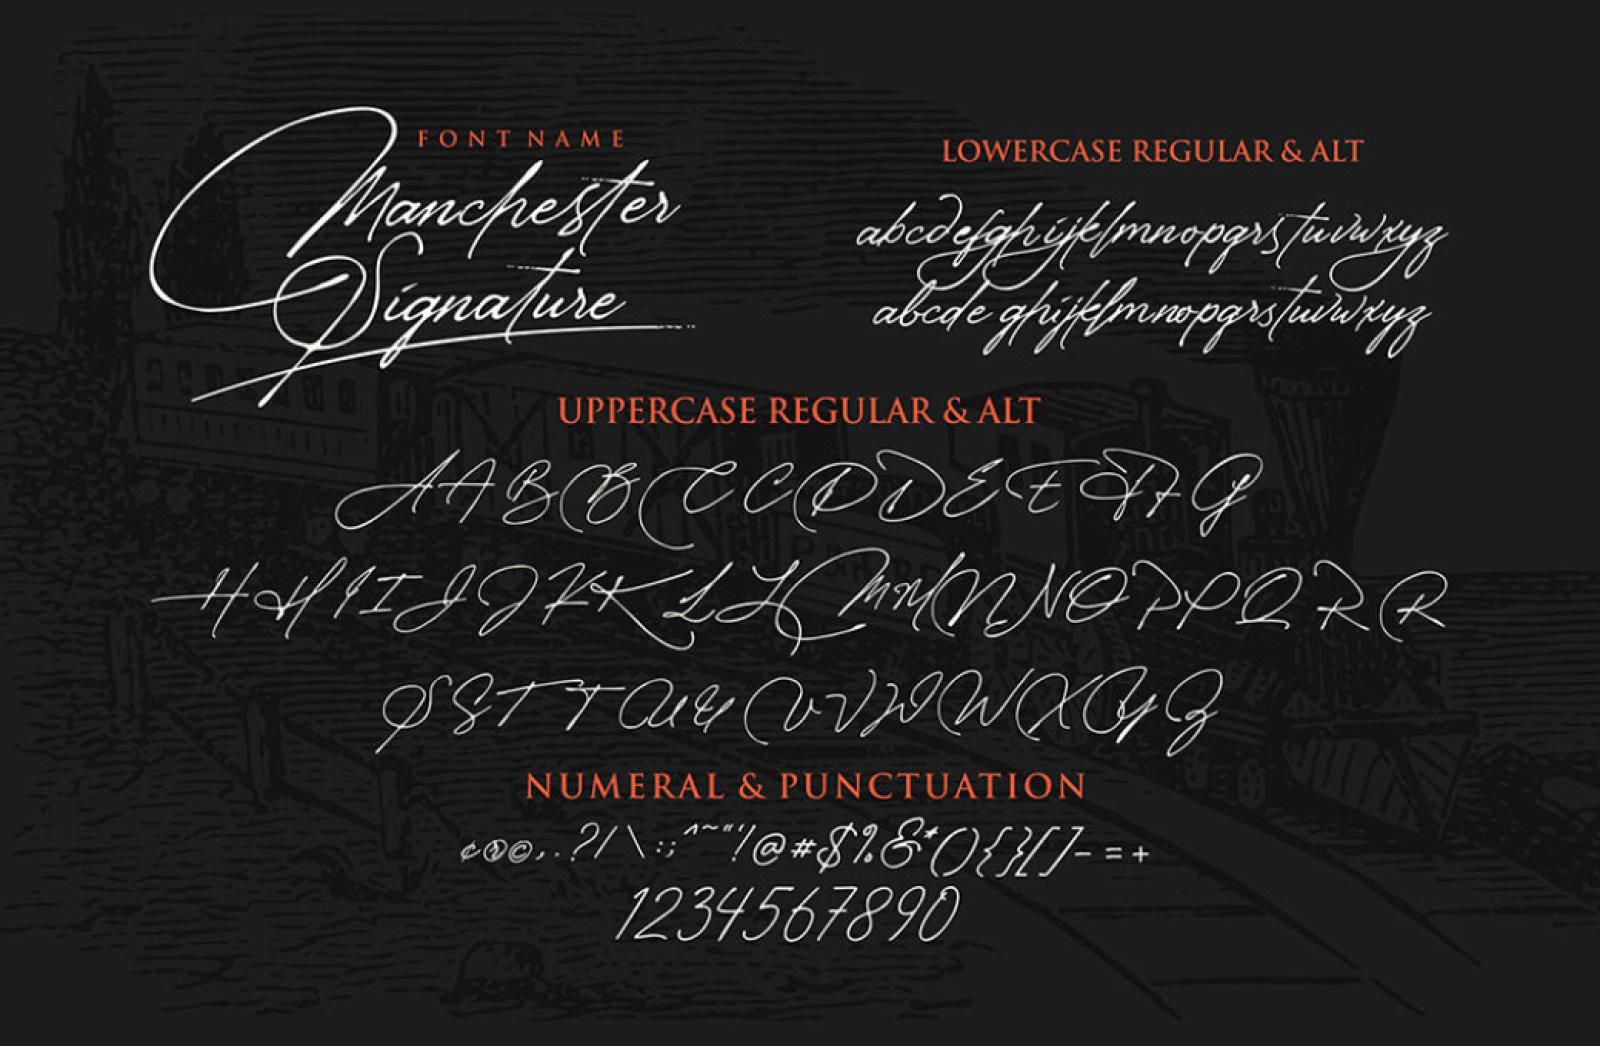 FONT NAME
Manchester
Signature
LOWERCASE REGULAR & ALT
abcdefghijklmnopqrstuvwxyz
abcde ghijklmnopqrstuvwxyz
UPPERCASE REGULAR & ALT
AABBCCDDEEFFG
HHIIJJKKLLMMNNOPPQRR
SSTTUUVVWWXYZ
NUMERAL & PUNCTUATION
¢®©,.?/\:;^~"'!@#$%&*(){}[]-=+
1234567890